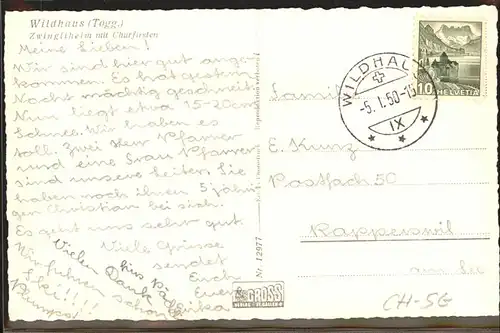 Wildhaus (Togg.)
Zwingliheim mit Churfirsten
Meine Lieben!
Wir sind hier gut ange-
kommen. Es hat gestern
Nacht mächtig geschneit.
Nun liegt etwa 15-20cm
Schnee. Wir haben es
toll. Zwei Herr Pfarrer
und eine Frau Pfarrer
sind unsere Leiter. Sie
haben noch ihnen 5 jähri-
gen Christian bei sich.
Es geht uns sehr gut
Viele Grüsse
sendet
Euch
Eure
Vielen Dank
Wir fuhren schon
Ski!!!!
Nr. 12977
GROSS
WILDHAUS
-5.I.50-
IX
10
HELVETIA
Familie
E. Kunz
Postfach 50
Rapperswil
am See
CH-SG